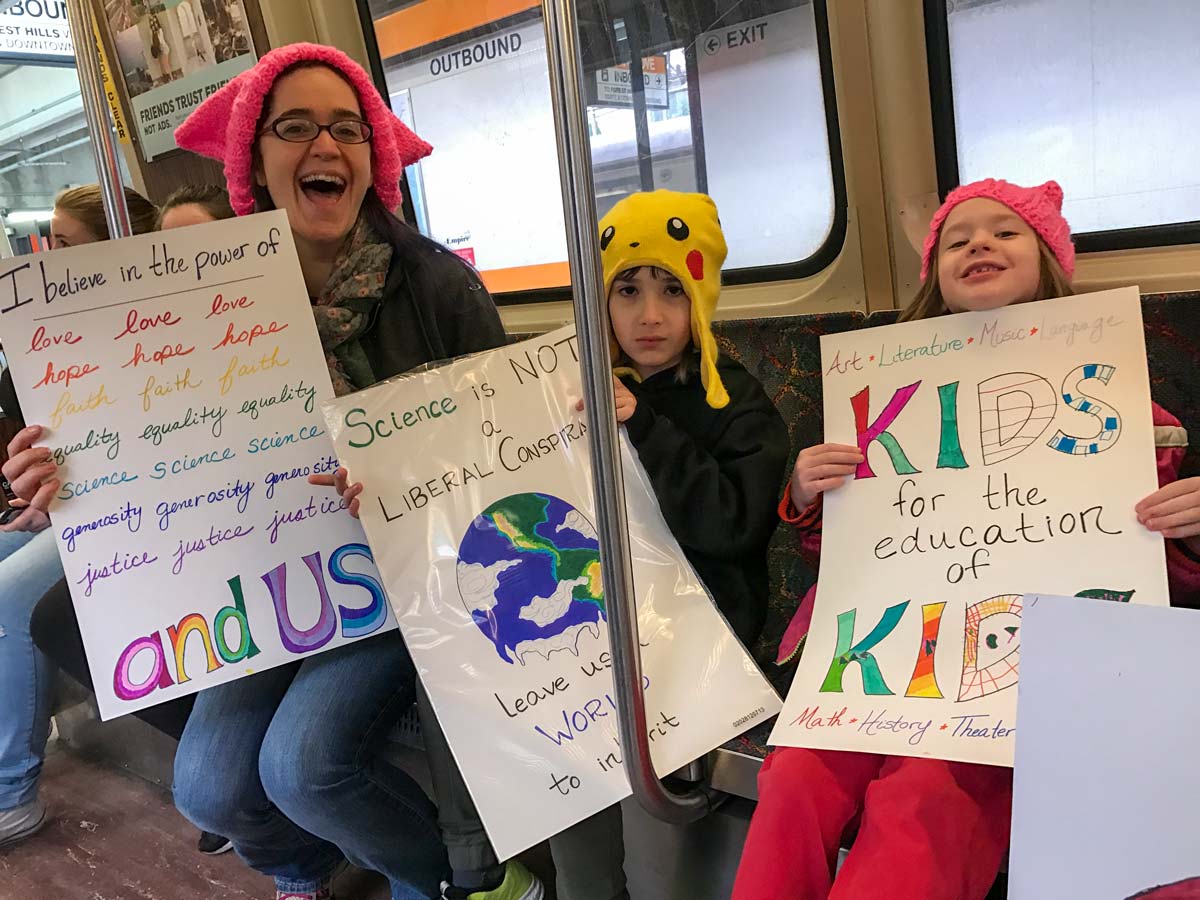 BOUN
EST HILLS
DOWNTOWN
CLEAR
FRIENDS TRUST
NOT ADS.
OUTBOUND
INBO
EXIT
I believe in the power of
love love love
hope hope hope
faith faith faith
equality equality equality
science science science
generosity generosity generosity
justice justice justice
and US
Science is NOT
a
LIBERAL CONSPIRA
Leave us a
WORL
to in rit
02028120713
Art * Literature * Music * Language
KIDS
for the
education
of
KID
Math * History * Theater